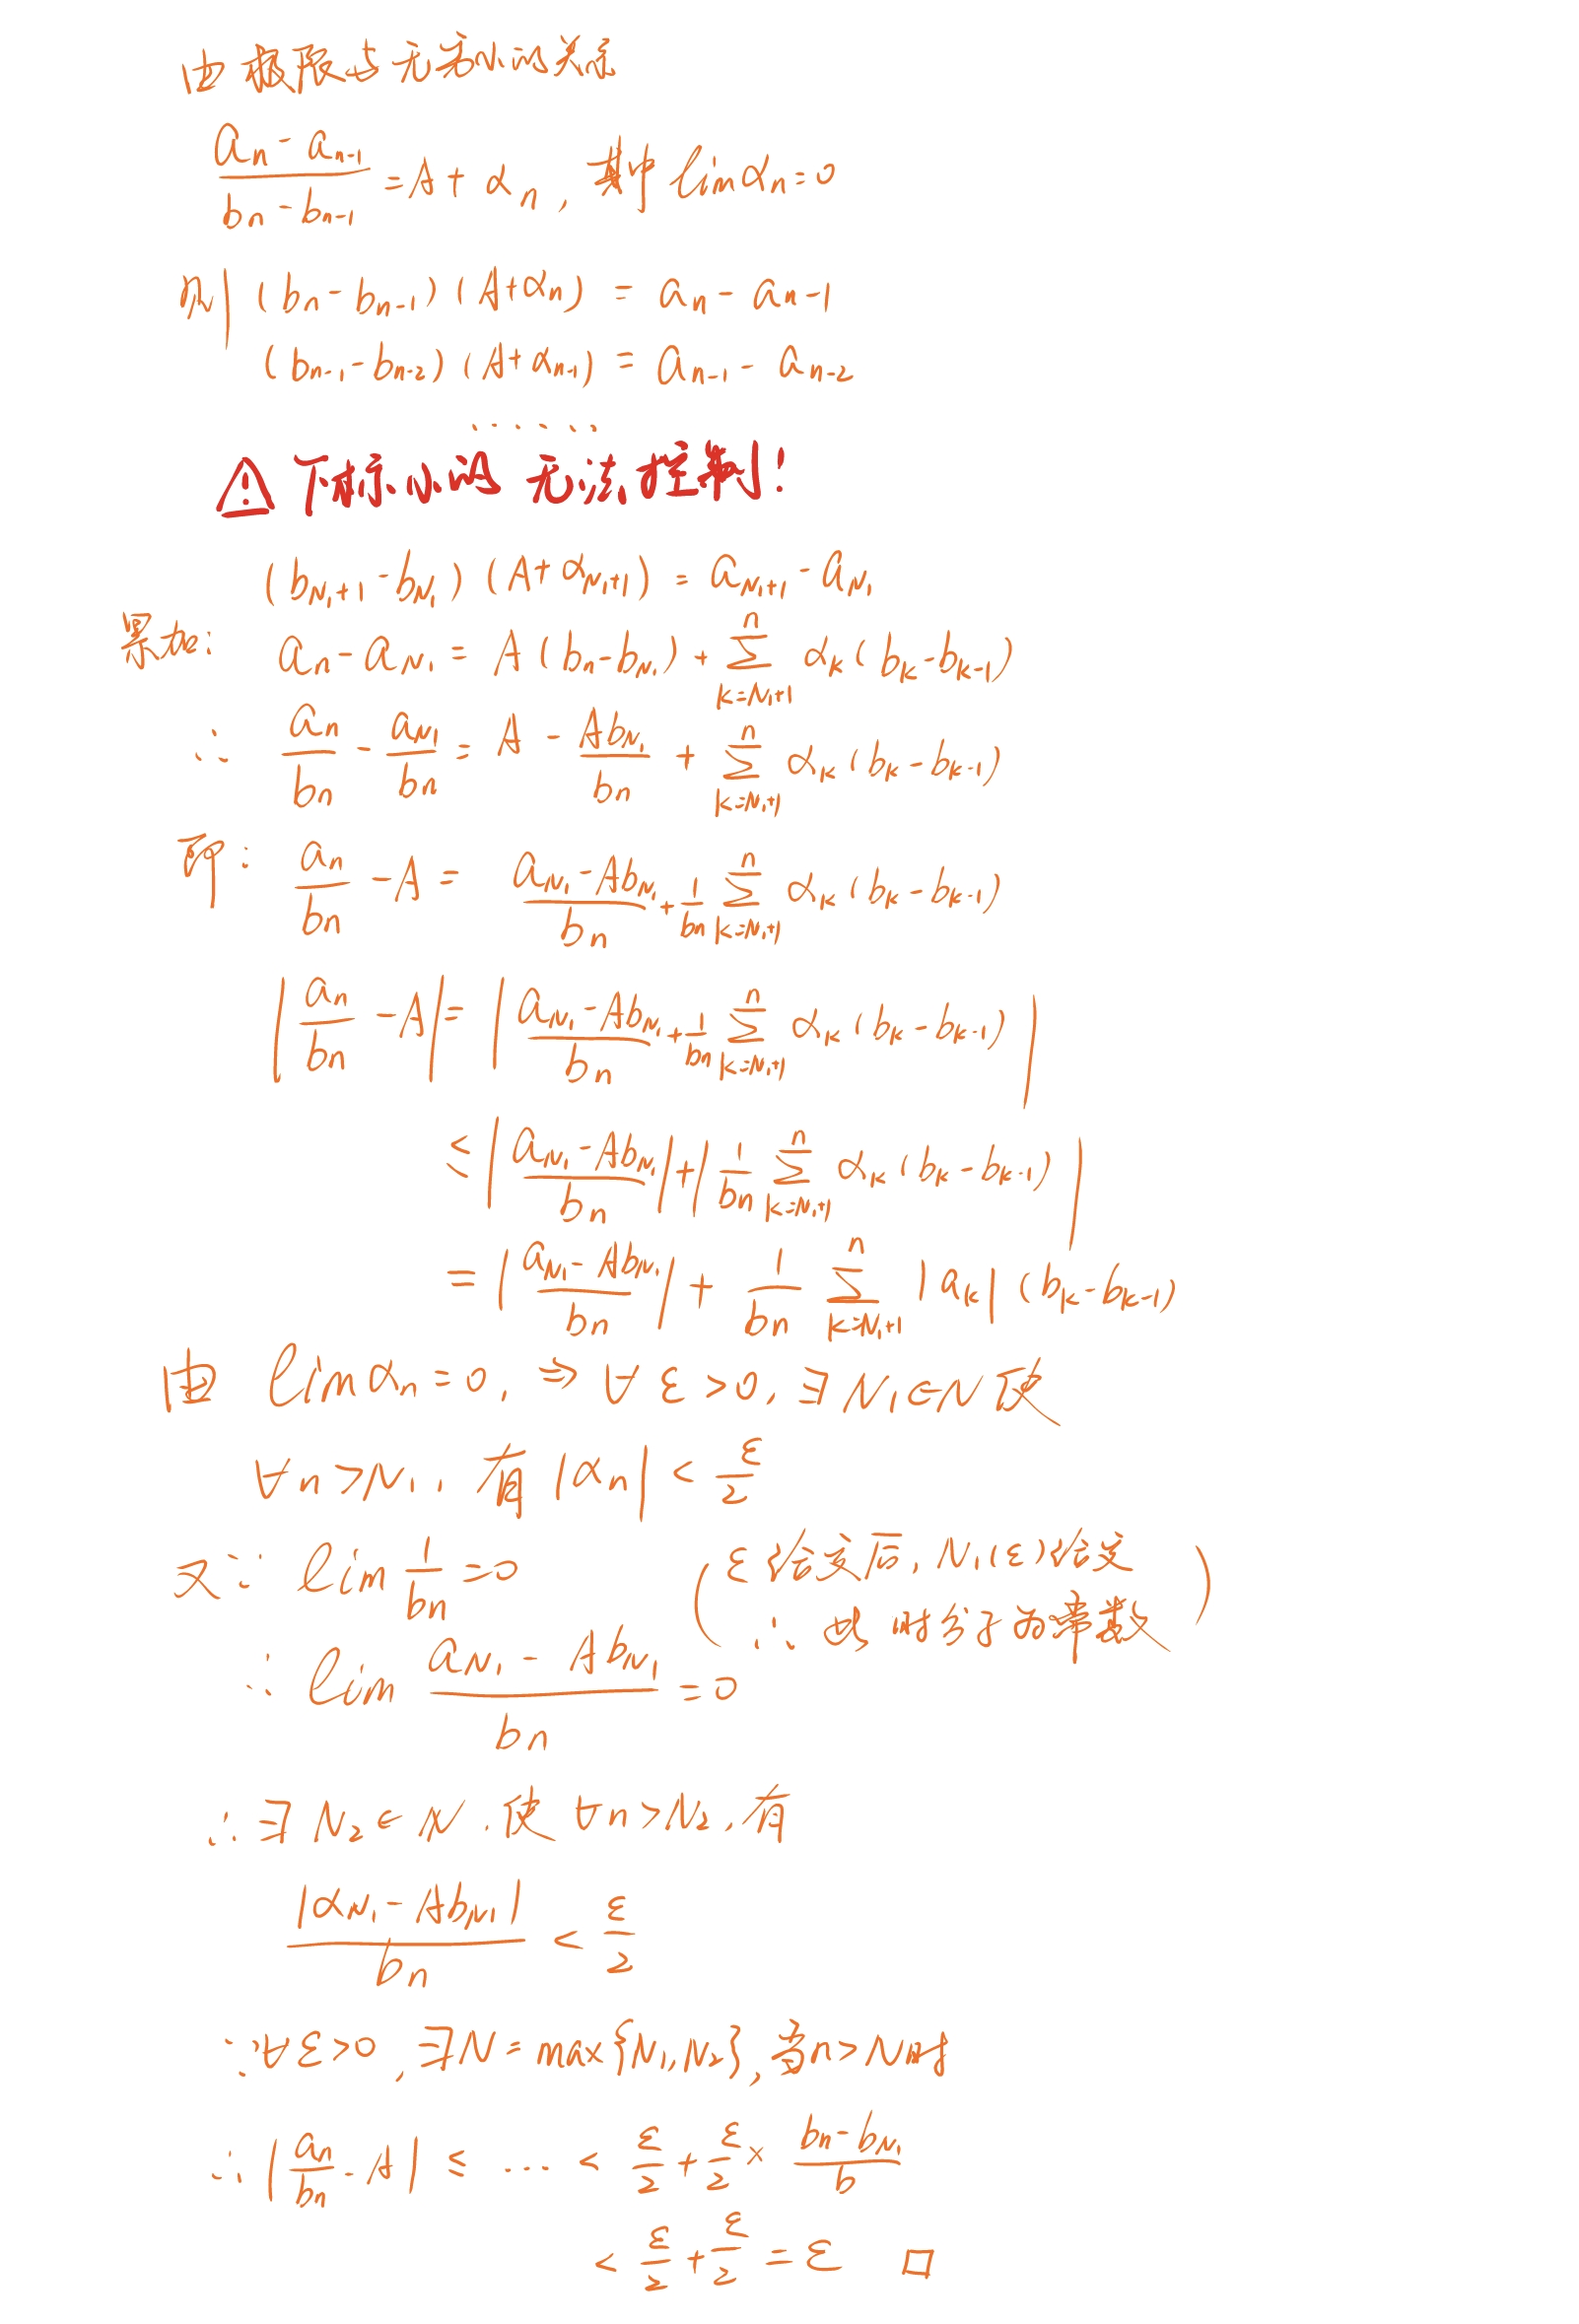 由极限与无穷小的关系
\frac{a_n - a_{n-1}}{b_n - b_{n-1}} = A + α_n, 其中 lim α_n = 0
则 (b_n - b_{n-1}) (A + α_n) = a_n - a_{n-1}
(b_{n-1} - b_{n-2}) (A + α_{n-1}) = a_{n-1} - a_{n-2}
......
⚠ 下标小的 无法控制!
(b_{N_1+1} - b_{N_1}) (A + α_{N_1+1}) = a_{N_1+1} - a_{N_1}
累加: a_n - a_{N_1} = A (b_n - b_{N_1}) + \sum_{k=N_1+1}^{n} α_k (b_k - b_{k-1})
∴ \frac{a_n}{b_n} - \frac{a_{N_1}}{b_n} = A - \frac{A b_{N_1}}{b_n} + \sum_{k=N_1+1}^{n} α_k (b_k - b_{k-1})
即: \frac{a_n}{b_n} - A = \frac{a_{N_1} - A b_{N_1}}{b_n} + \frac{1}{b_n} \sum_{k=N_1+1}^{n} α_k (b_k - b_{k-1})
|\frac{a_n}{b_n} - A| = |\frac{a_{N_1} - A b_{N_1}}{b_n} + \frac{1}{b_n} \sum_{k=N_1+1}^{n} α_k (b_k - b_{k-1})|
≤ |\frac{a_{N_1} - A b_{N_1}}{b_n}| + |\frac{1}{b_n} \sum_{k=N_1+1}^{n} α_k (b_k - b_{k-1})|
= |\frac{a_{N_1} - A b_{N_1}}{b_n}| + \frac{1}{b_n} \sum_{k=N_1+1}^{n} |a_k| (b_k - b_{k-1})
由 lim α_n = 0, ⇒ ∀ ε > 0, ∃ N_1 ∈ N 使
∀ n > N_1, 有 |α_n| < \frac{ε}{2}
又∵ lim \frac{1}{b_n} = 0
(ε给定后, N_1(ε)给定
∴ 此时分子为常数)
∴ lim \frac{a_{N_1} - A b_{N_1}}{b_n} = 0
∴ ∃ N_2 ∈ N, 使 ∀ n > N_2, 有
\frac{|α_{N_1} - A b_{N_1}|}{b_n} < \frac{ε}{2}
∵ ∀ ε > 0, ∃ N = max{N_1, N_2}, 当 n > N 时
∴ |\frac{a_n}{b_n} - A| ≤ ... < \frac{ε}{2} + \frac{ε}{2} × \frac{b_n - b_{N_1}}{b}
< \frac{ε}{2} + \frac{ε}{2} = ε □